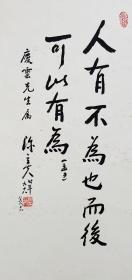 人有不為也而後
可以有為(孟子)
慶雲先生屬
陳立夫